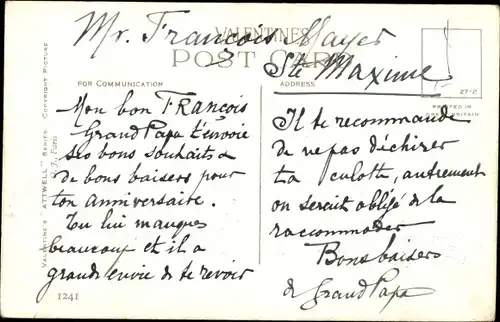 Mr. François Mayer
VALENTINES
POST CARD
Ste Maxime
FOR COMMUNICATION
ADDRESS
27-2
PRINTED IN
GREAT BRITAIN
VALENTINE'S "ATTWELL" SERIES. COPYRIGHT PICTURE
Paris
Mon bon François
Grand Papa t'envoie
ses bons souhaits &
de bons baisers pour
ton anniversaire.
Tu lui manques
beaucoup et il a
grande envie de te revoir
1241
Il te recommande
de ne pas déchirer
ta culotte, autrement
on serait obligé de la
raccommoder
Bons baisers
de Grand Papa